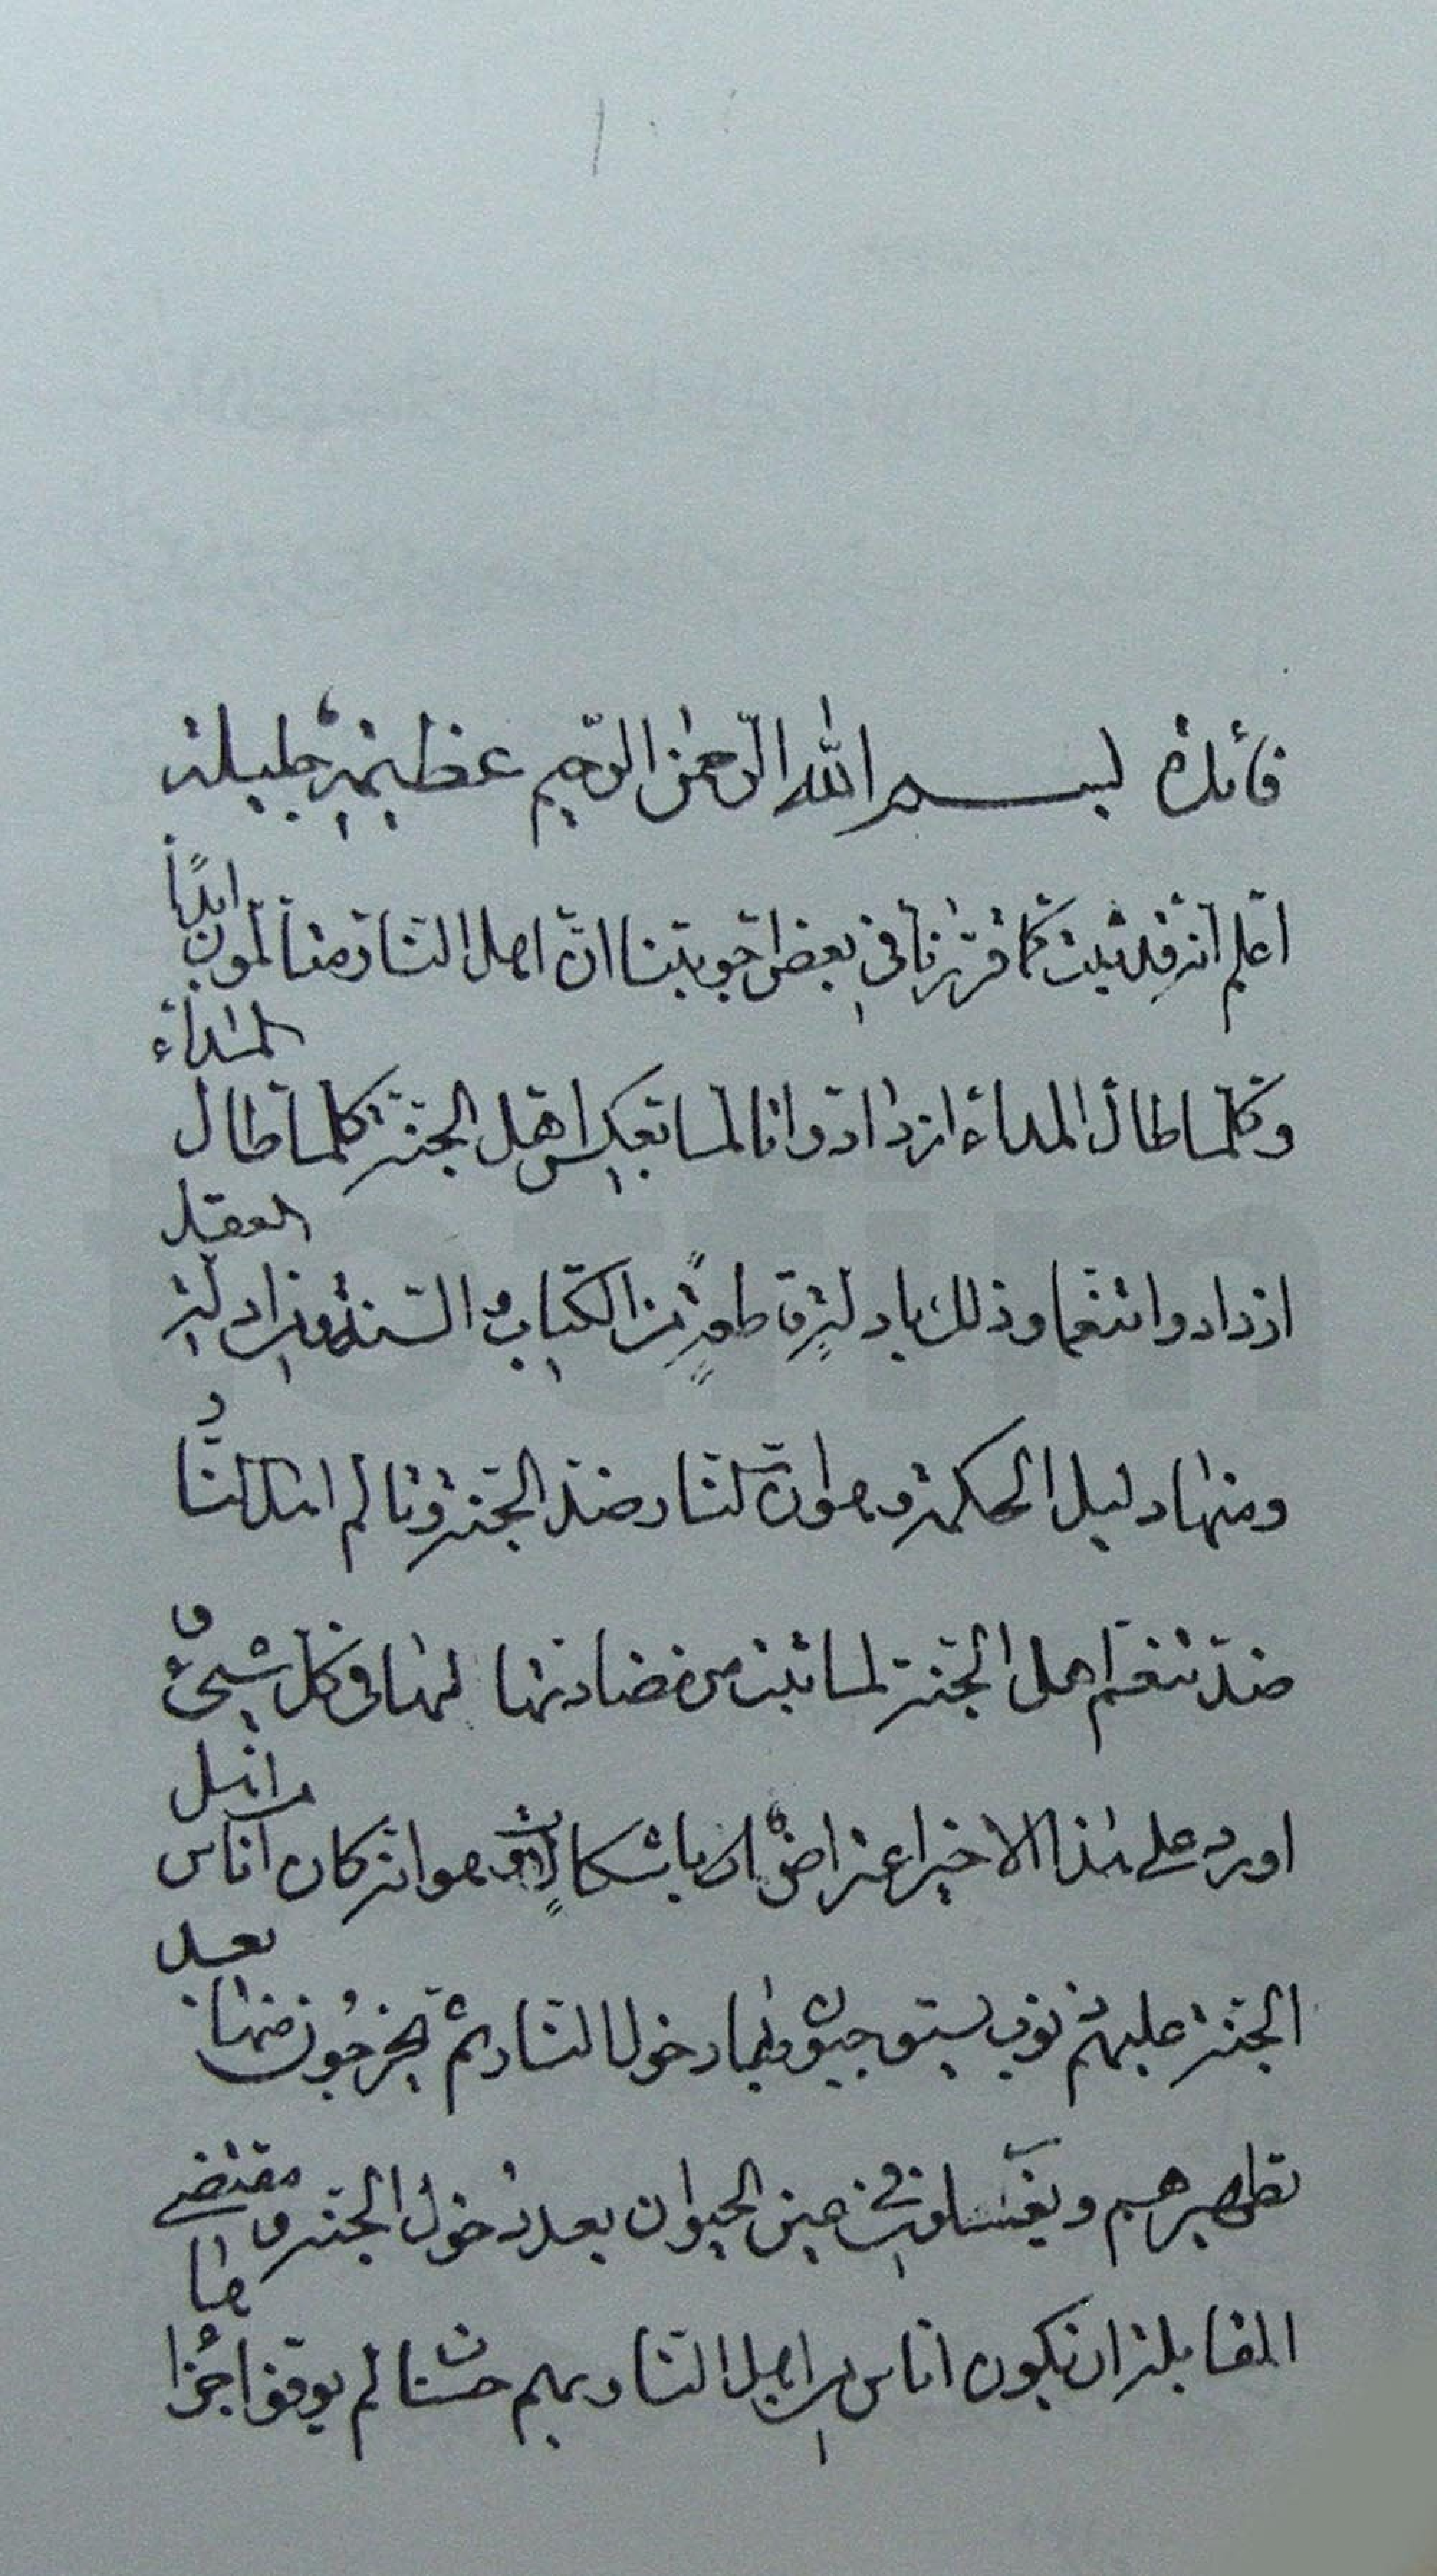 فائدة بسم الله الرحمن الرحيم عظيمة جليلة
اعلم انه قد ثبت كما قررنا في بعض اجوبتنا ان اهل النار متألمون ابدًا
وكلما طال المداء ازدادوا تألما بعكس اهل الجنة كلما طال المداء
ازدادوا تنعما وذلك بادلةٍ قاطعةٍ من الكتاب والسنة وادلة العقل
ومنها دليل الحكمة وهو ان النار ضد الجنة وتألم اهل النار
ضد تنعم اهل الجنة لما ثبت من مضادتها لها في كل شيء و
اورد على هذا الاخير اعتراض باشكالٍ وهو انه كان اناس من اهل
الجنة عليهم ذنوب يستوجبون بها دخول النار ثم يخرجون منها بعد
تطهيرهم ويغسلون في عين الحيوان بعد دخول الجنة و مقتضى
المقابلة ان يكون اناس من اهل النار لهم حسنات لم يوفوا جزاءها